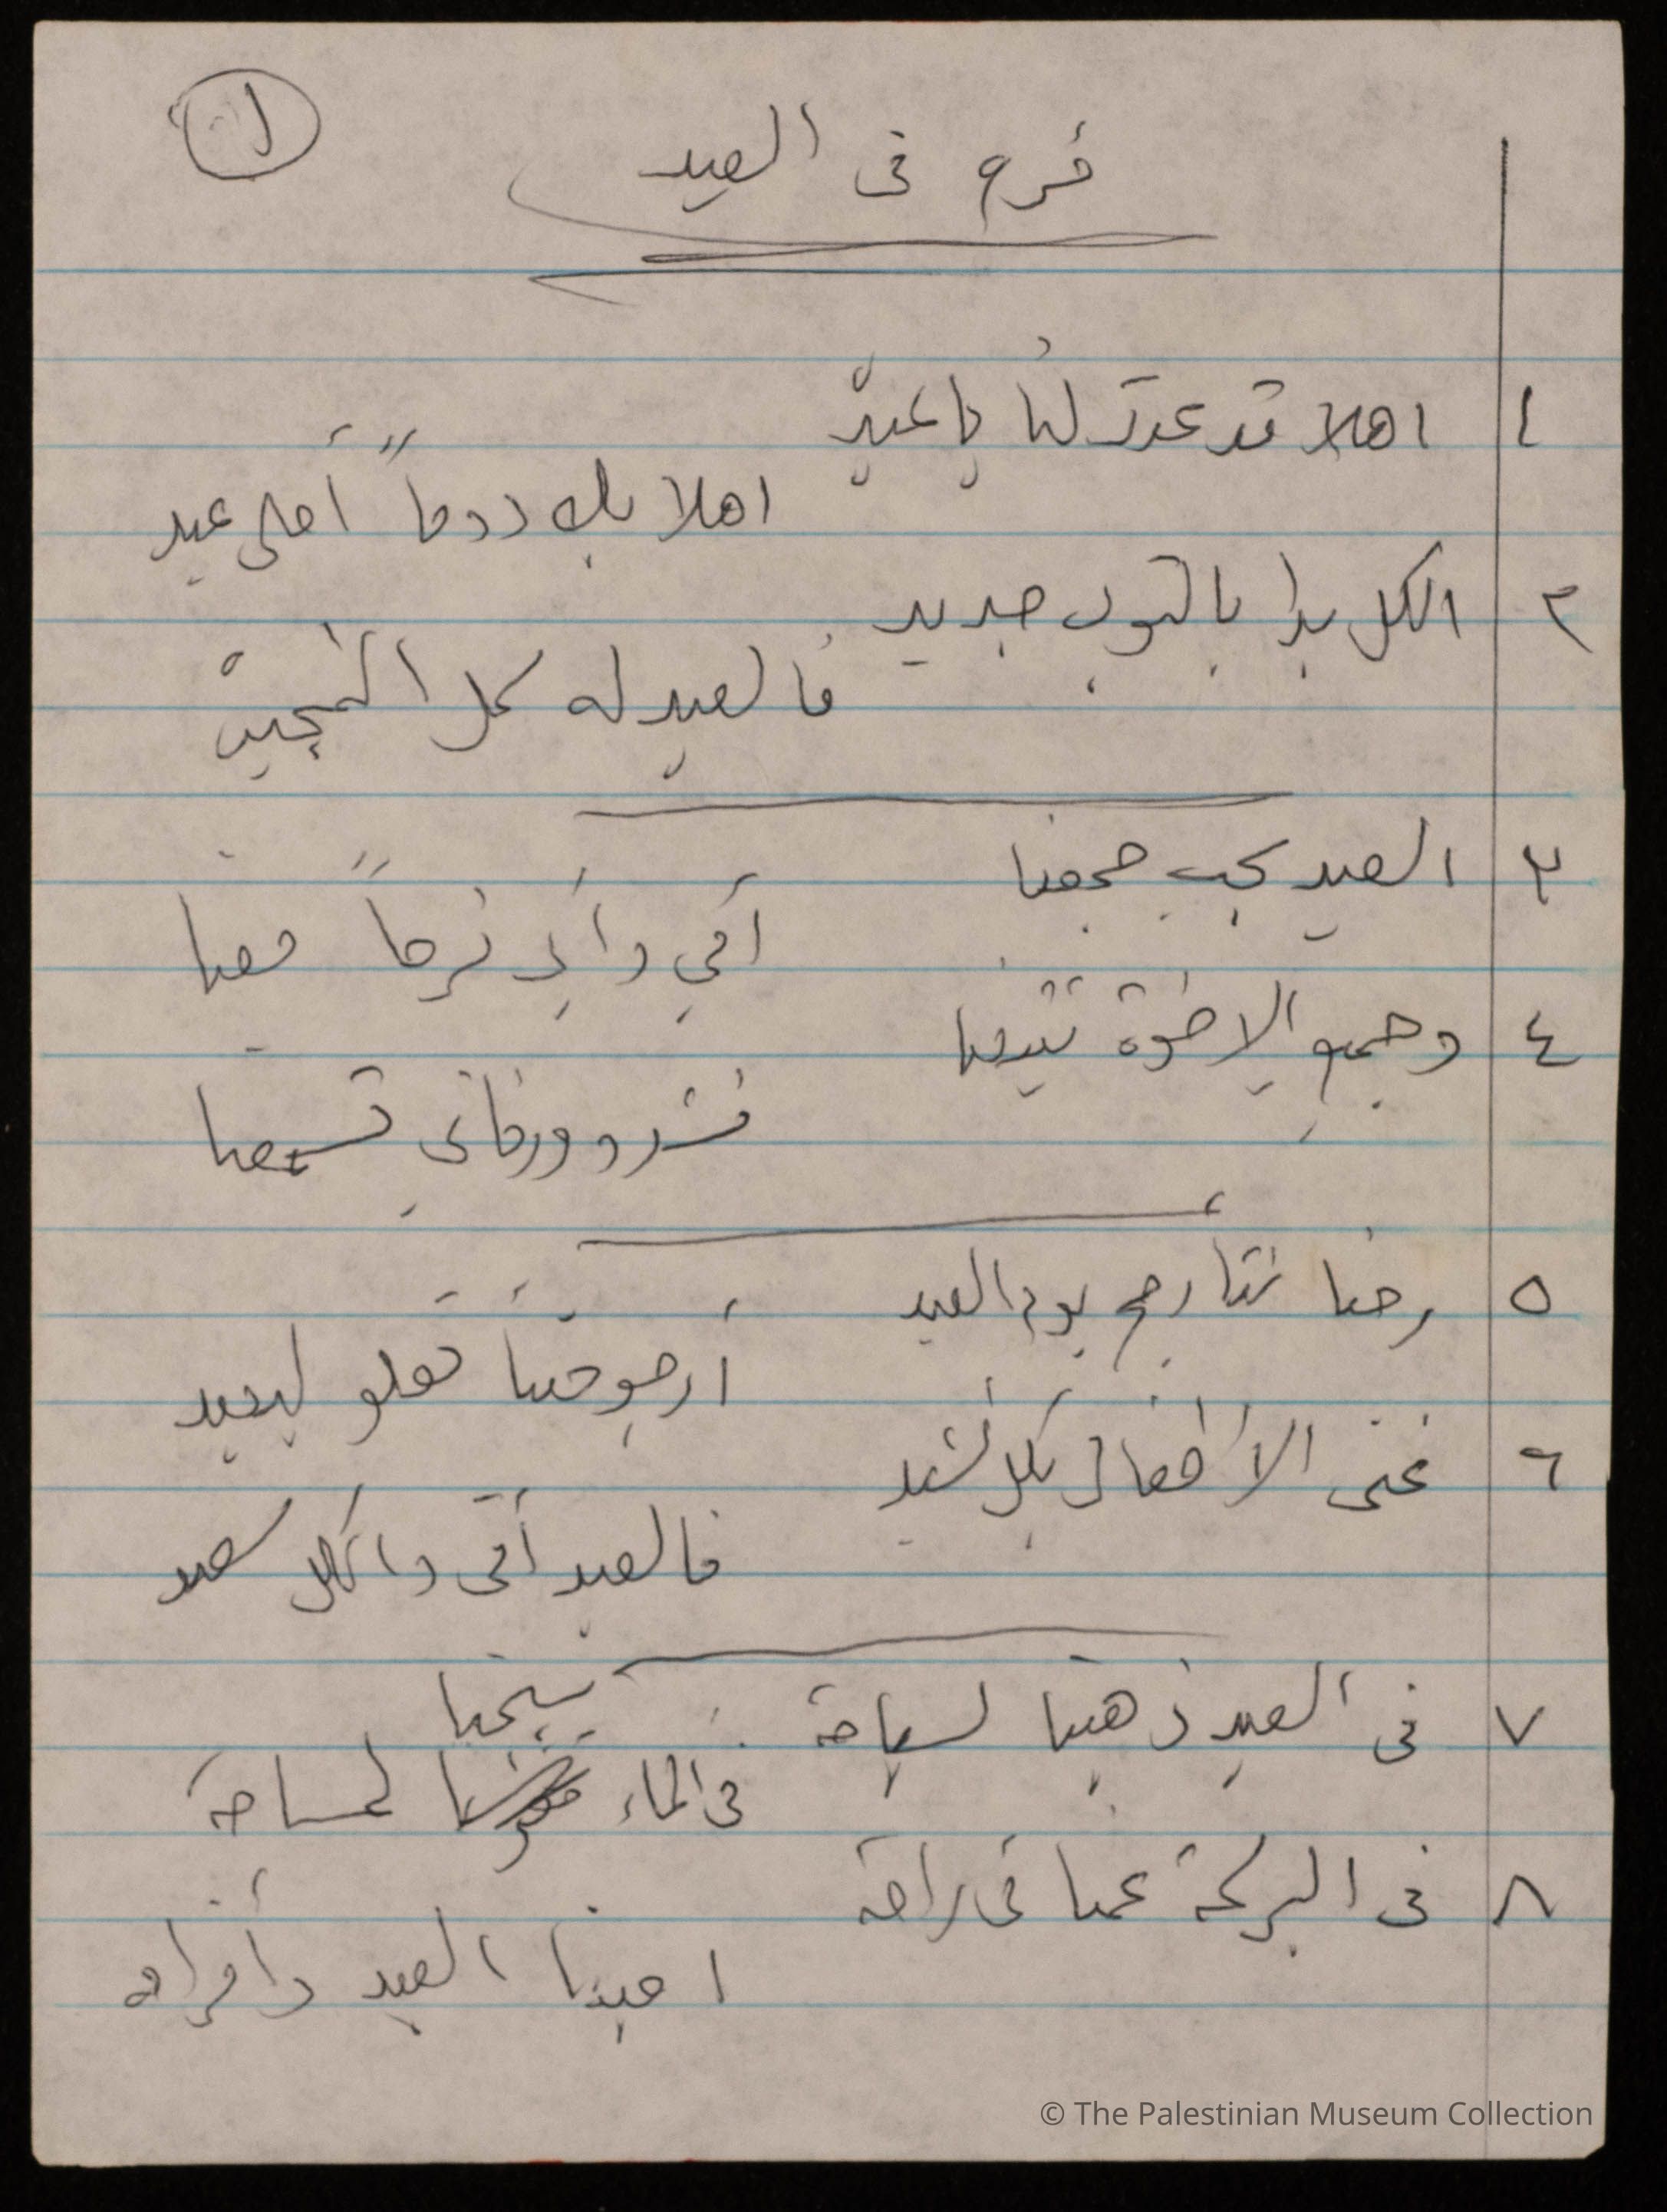 ١
فرح في العيد
١ اهلا قد عدت لنا يا عيدْ
اهلا بك دوماً أحلى عيد
٢ الكل بدا بالثوب جديد
فالعيد له كل التمجيدْ
٣ العيد يجب يجمعنا
أمي وأبي فرحاً معنا
٤ وجميع الإخوة تتبعنا
نشدو وأغاني تسمعنا
٥ رحنا نتأرجح يوم العيد
أرجوحتنا تعلو لبعيد
٦ غنى الأطفال بكل نشيد
فالعيد أتى والكل سعيد
٧ في العيد ذهبنا لسباحة
سبحنا
في الماء لمساحة
٨ في البركة عمنا في راحة
احببنا العيد وأفراحه
© The Palestinian Museum Collection